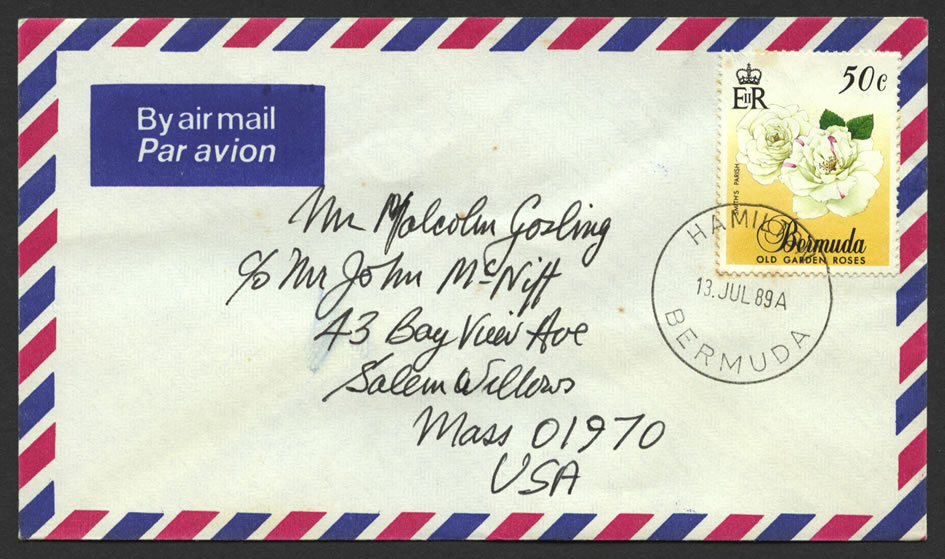 By air mail
Par avion
EIIR
50c
SMITH'S PARISH
Bermuda
OLD GARDEN ROSES
HAMILTON
13.JUL 89A
BERMUDA
Mr Malcolm Gosling
c/o Mr John McNiff
43 Bay View Ave
Salem Willows
Mass 01970
USA